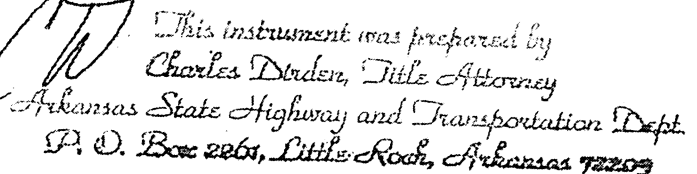 This instrument was prepared by
Charles Dirden, Title Attorney
Arkansas State Highway and Transportation Dept.
P. O. Box 2261, Little Rock, Arkansas 72203